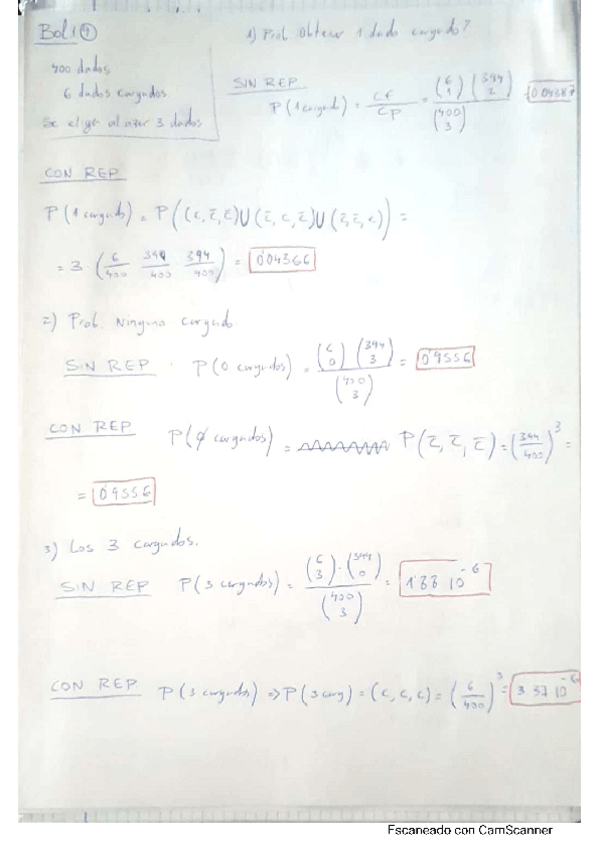 Bol 1 ④
1) Prob. Obtener 1 dado cargado?
400 dados
6 dados cargados
Se elige al azar 3 dados
SIN REP
P(1 cargado) = CF/CP = (6 1)(394 2)/(400 3) 0'04387
CON REP
P(1 cargado) = P((c, c̅, c̅)U(c̅, c, c̅)U(c̅, c̅, c)) =
= 3 (6/400 394/400 394/400) = 0'04366
2) Prob. Ninguno cargado
SIN REP P(0 cargados) = (6 0)(394 3)/(400 3) = 0'9556
CON REP P(0 cargados) = P(c̅, c̅, c̅) = (394/400)³ =
= 0'9556
3) Los 3 cargados.
SIN REP P(3 cargados) = (6 3)·(394 0)/(400 3) = 1'88 10⁻⁶
CON REP P(3 cargados) => P(3 carg) = (c, c, c) = (6/400)³ = 3'37·10⁻⁶
Escaneado con CamScanner